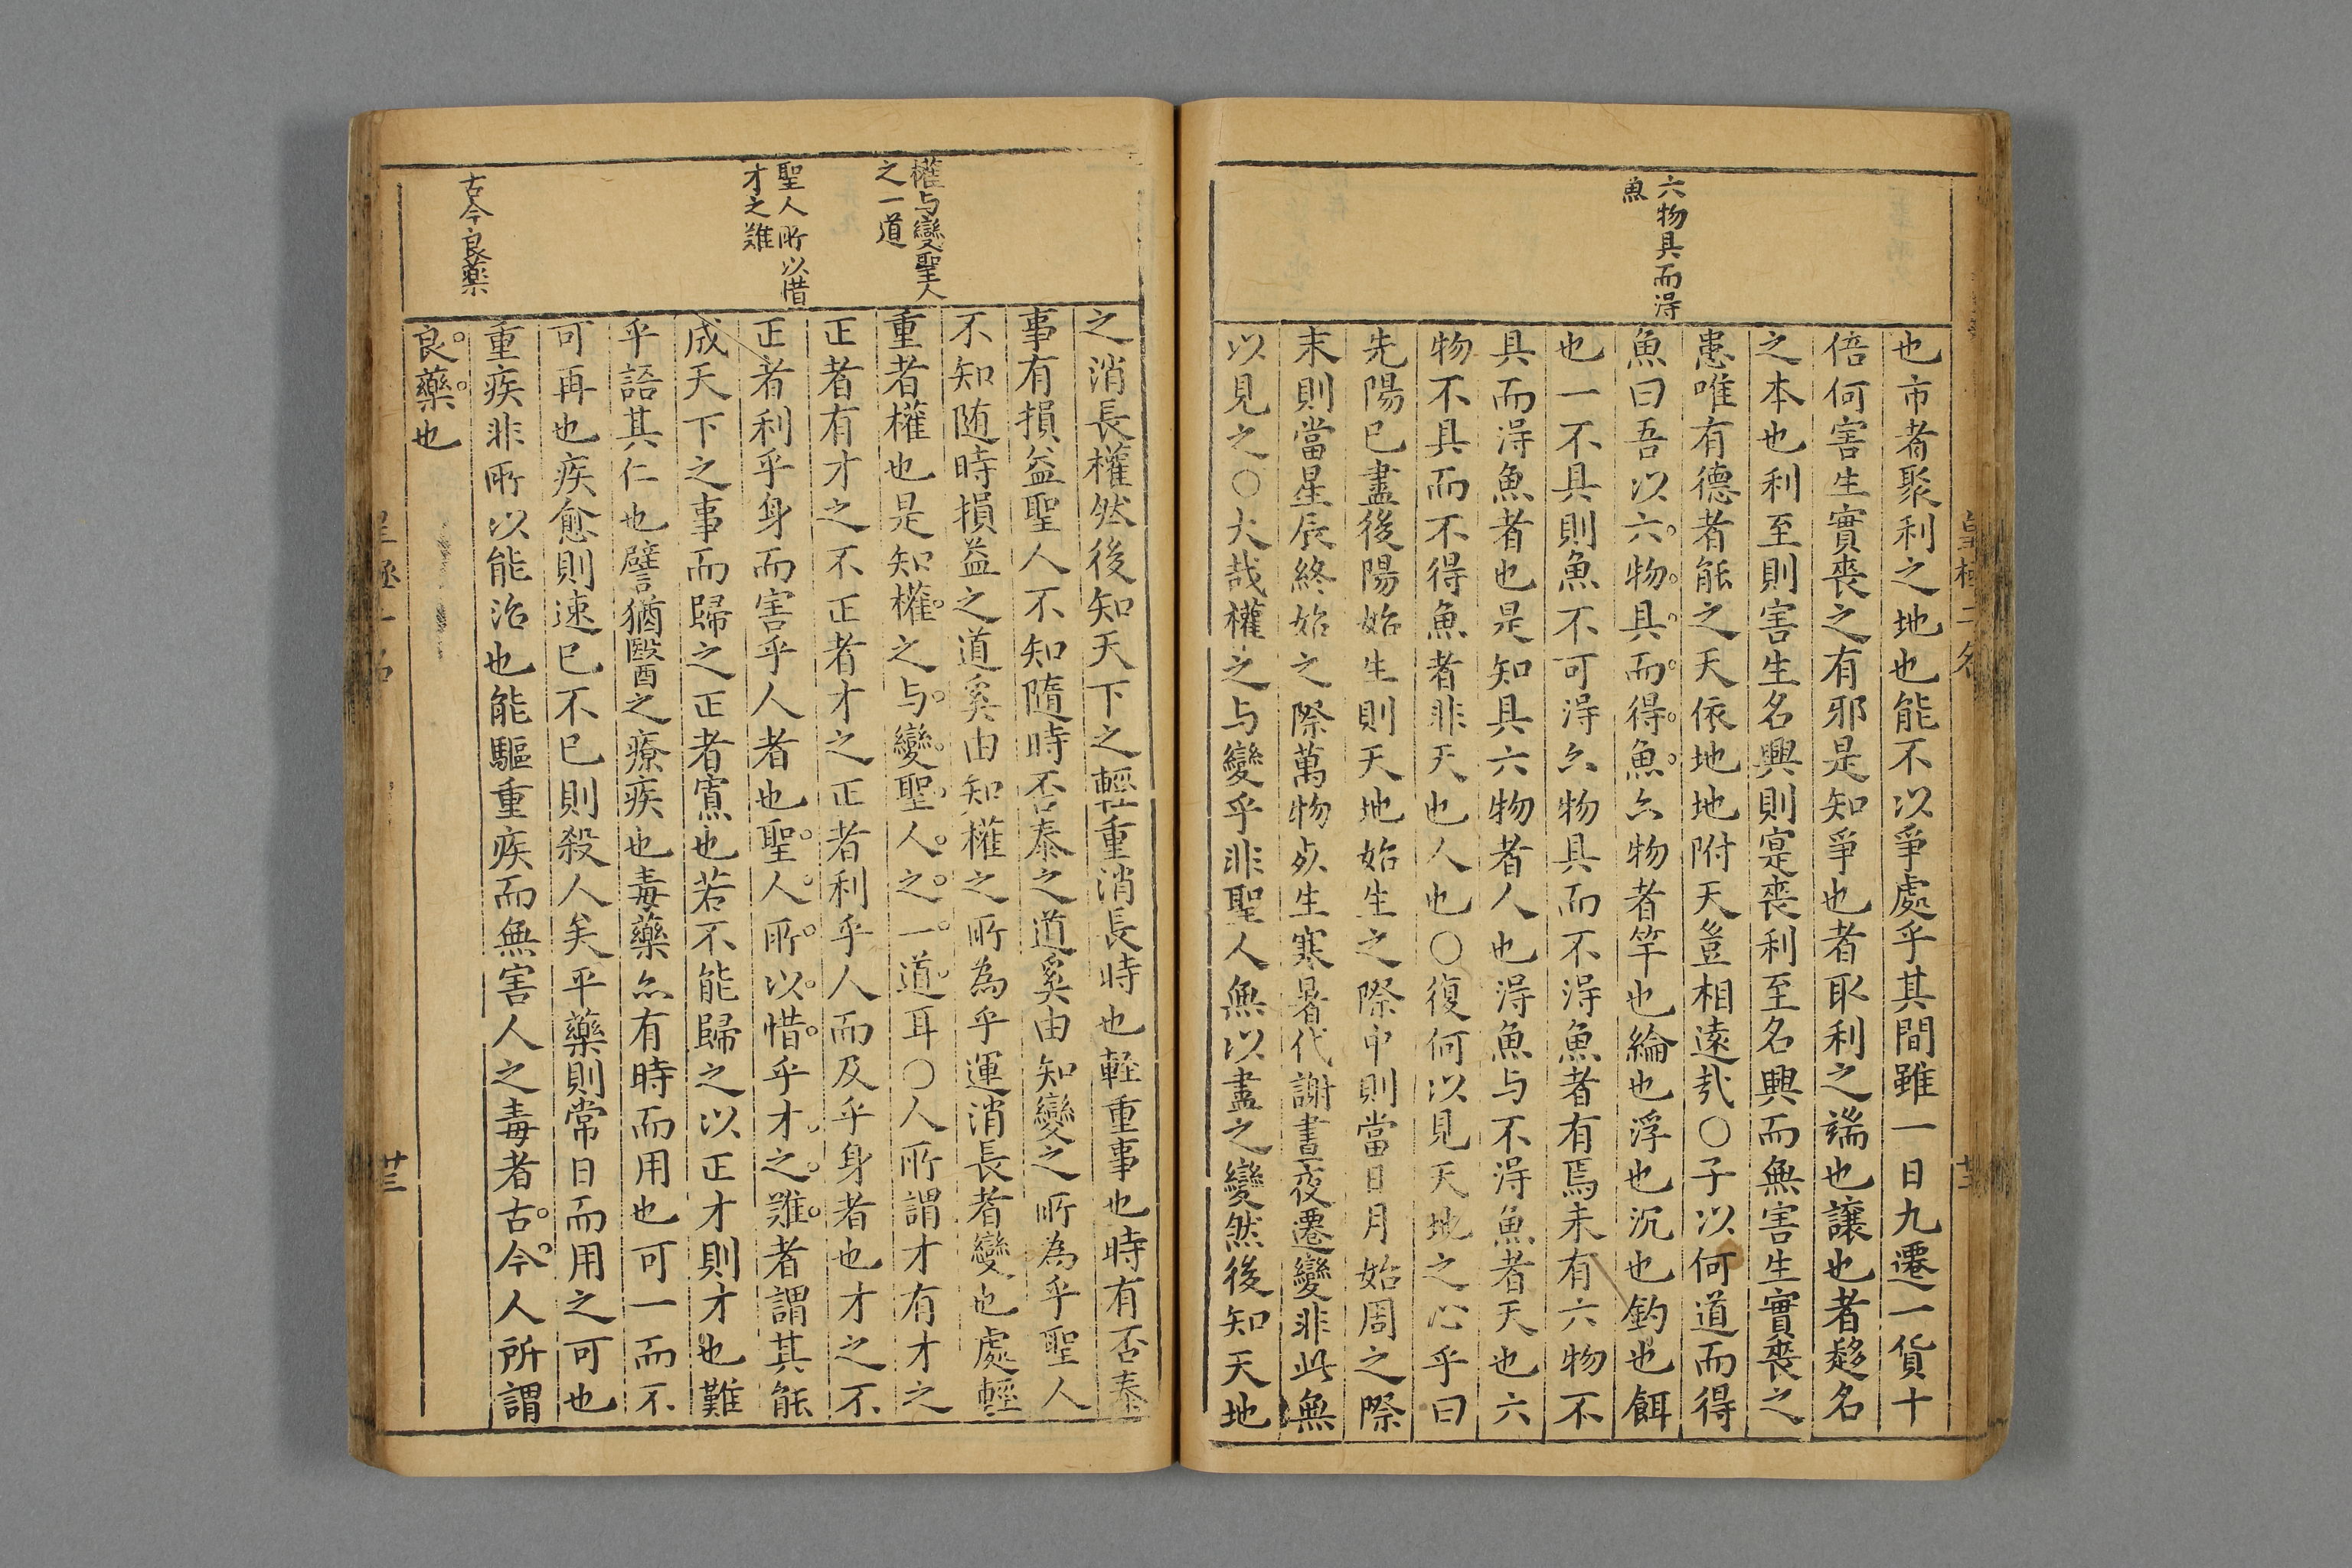 六物具而淂
魚
也市者聚利之地也能不以爭處乎其間雖一日九遷一貨十
倍何害生實喪之有邪是知爭也者取利之端也讓也者趍名
之本也利至則害生名興則寔喪利至名興而無害生實喪之
患唯有德者能之天依地地附天豈相遠㢤○子以何道而得
魚曰吾以六物具而得魚六物者竿也綸也浮也沉也釣也餌
也一不具則魚不可淂亽物具而不淂魚者有焉未有六物不
具而淂魚者也是知具六物者人也淂魚与不淂魚者天也六
物不具而不得魚者非天也人也○復何以見天地之心乎曰
先陽已盡後陽始生則天地始生之際中則當日月始周之際
末則當星辰終始之際萬物死生寒暑代謝晝夜遷變非此無
以見之○大哉權之与變乎非聖人無以盡之變然後知天地
皇極二名
廿三
權与變聖人
之一道
聖人所以惜
才之難
古今良藥
之消長權然後知天下之輕重消長時也軽重事也時有否泰
事有損益聖人不知隨時否泰之道奚由知變之所為乎聖人
不知随時損益之道奚由知權之所為乎運消長者變也處輕
重者權也是知權之与變聖人之一道耳○人所謂才有才之
正者有才之不正者才之正者利乎人而及乎身者也才之不
正者利乎身而害乎人者也聖人所以惜乎才之難者謂其能
成天下之事而歸之正者寡也若不能歸之以正才則才也難
乎語其仁也譬猶醫之療疾也毒藥亦有時而用也可一而不
可再也疾愈則速已不已則殺人矣平藥則常日而用之可也
重疾非所以能治也能驅重疾而無害人之毒者古今人所謂
良藥也
廿三